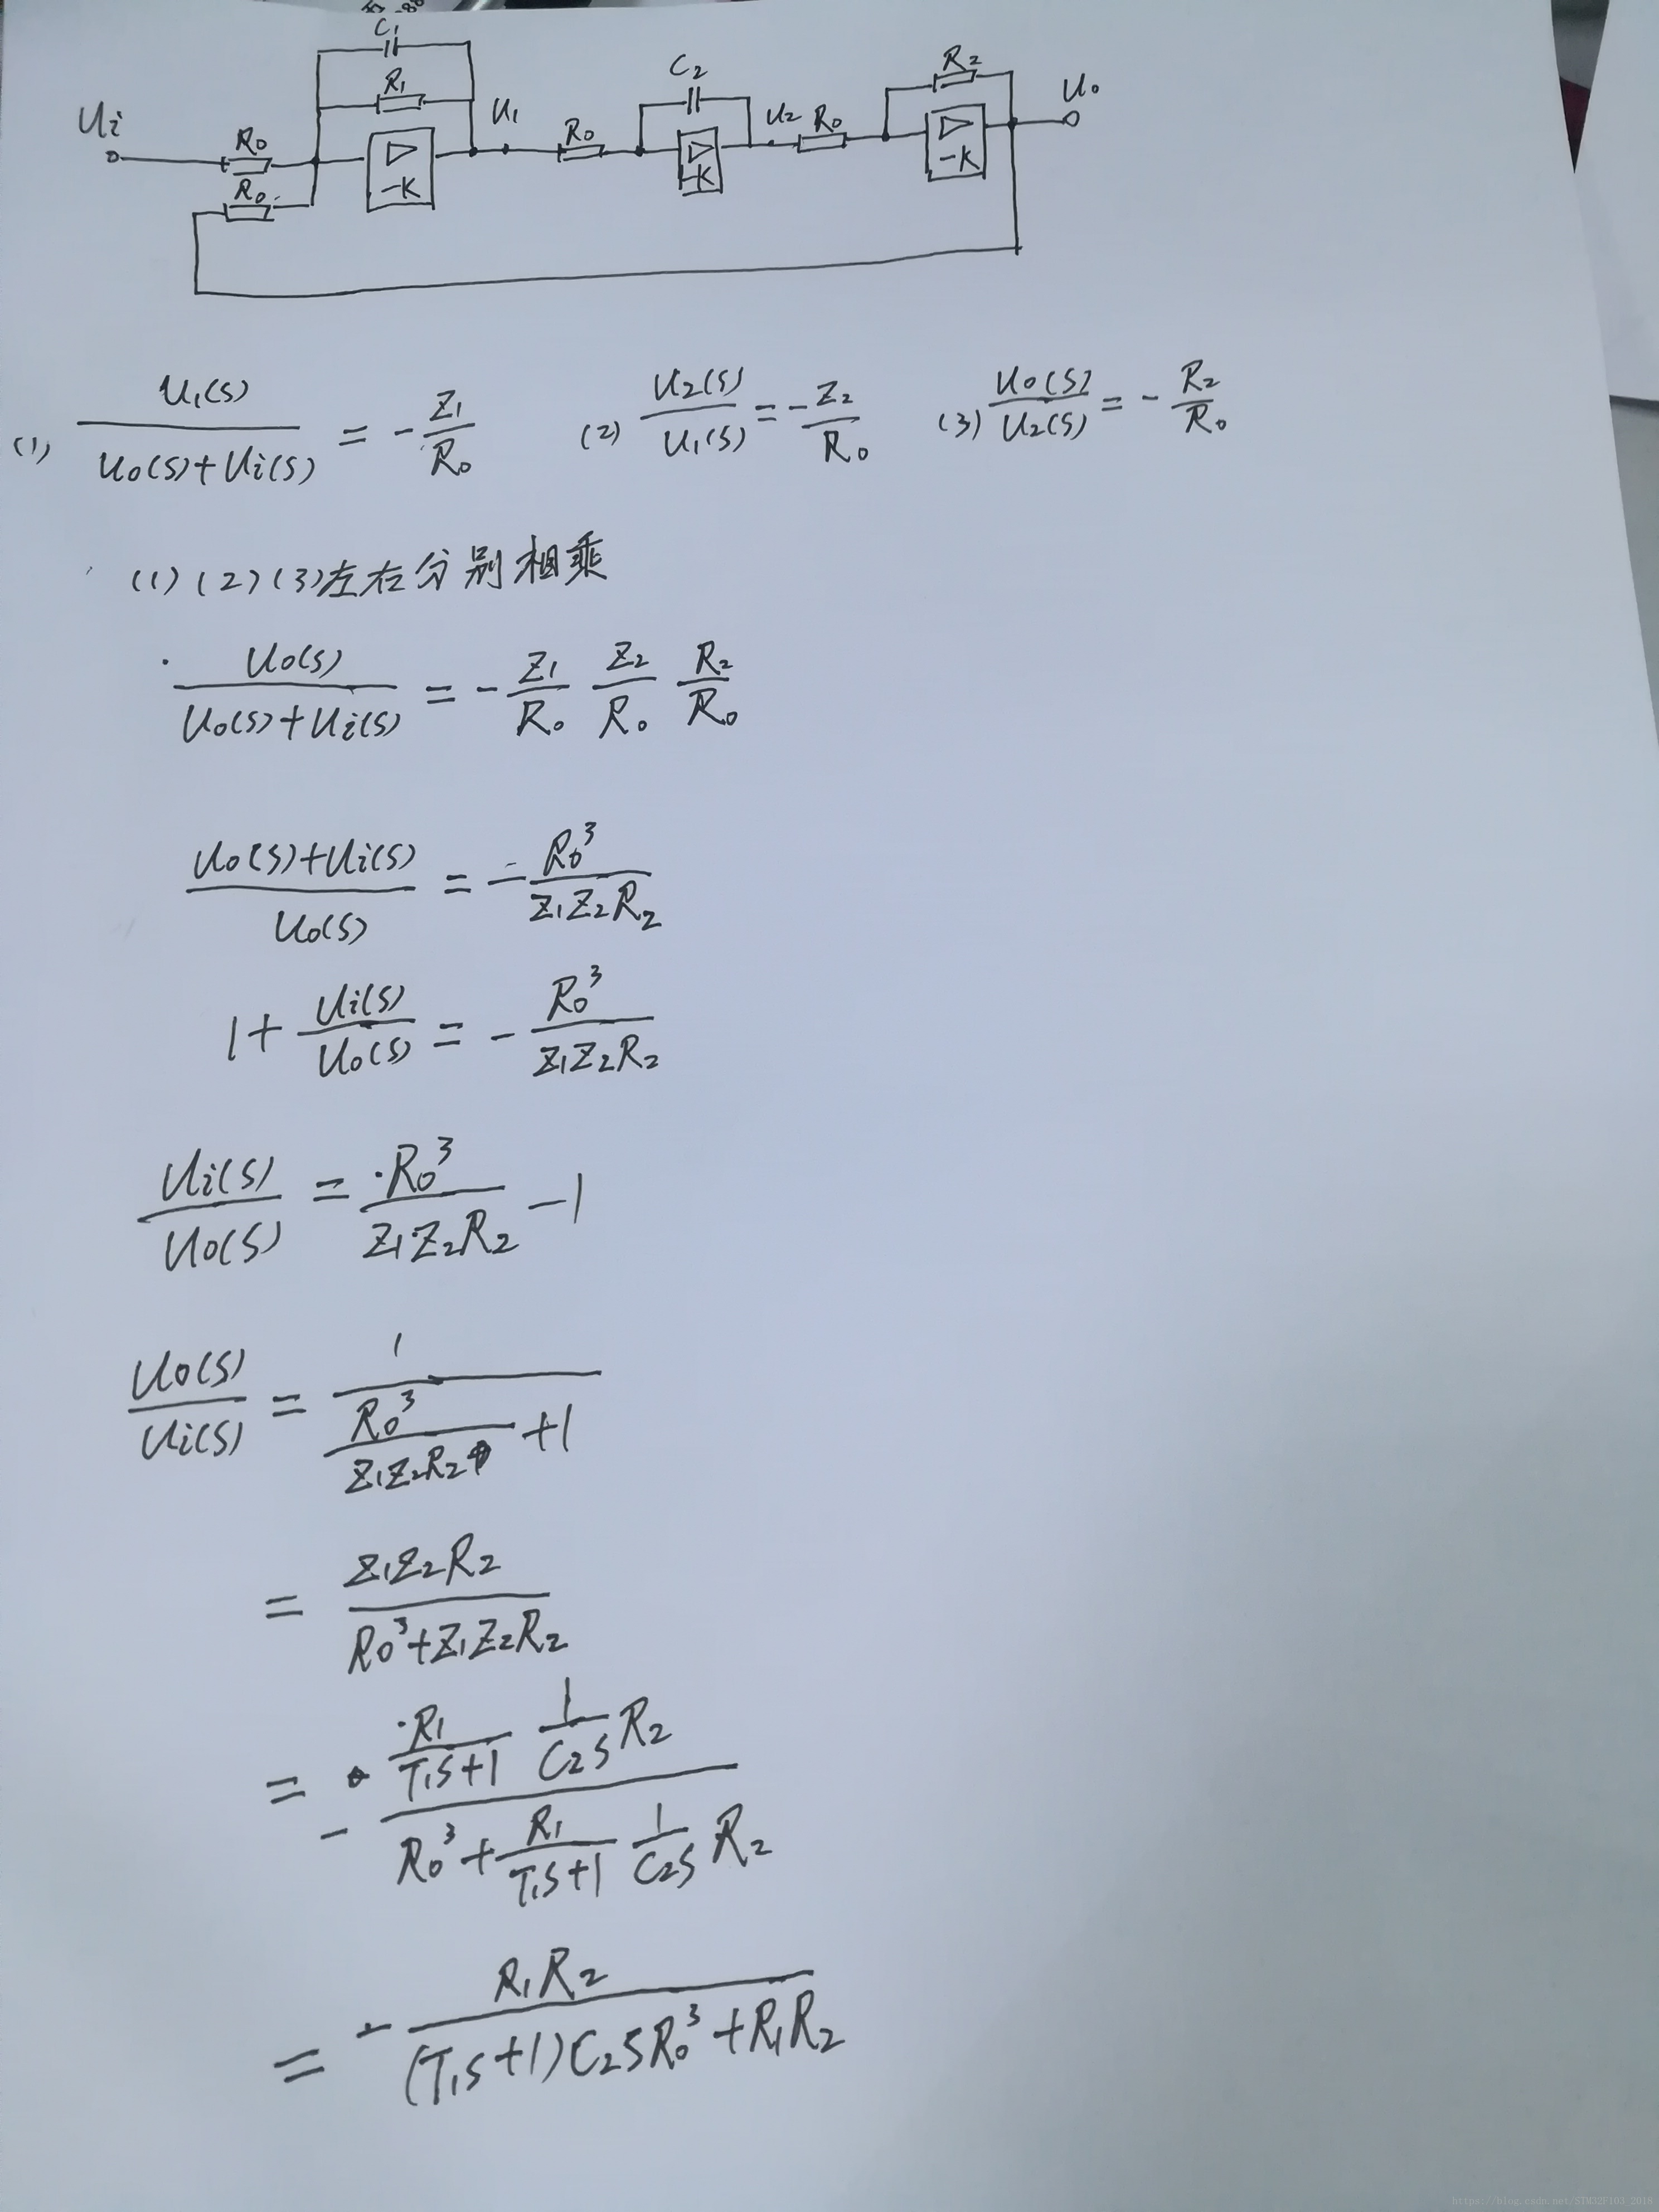 C₁
R₁
Ui
R₀
R₀
-K
U₁
R₀
C₂
-K
U₂
R₀
R₂
-K
U₀
(1) U₁(s) / (U₀(s)+Ui(s)) = - Z₁/R₀ (2) U₂(s)/U₁(s) = - Z₂/R₀ (3) U₀(s)/U₂(s) = - R₂/R₀
(1)(2)(3)左右分别相乘
U₀(s) / (U₀(s)+Ui(s)) = - Z₁/R₀ Z₂/R₀ R₂/R₀
(U₀(s)+Ui(s)) / U₀(s) = - R₀³ / (Z₁Z₂R₂)
1 + Ui(s)/U₀(s) = - R₀³ / (Z₁Z₂R₂)
Ui(s)/U₀(s) = R₀³ / (Z₁Z₂R₂) - 1
U₀(s)/Ui(s) = 1 / (R₀³/(Z₁Z₂R₂) + 1)
= Z₁Z₂R₂ / (R₀³+Z₁Z₂R₂)
= - (R₁/(T₁s+1) 1/(C₂s) R₂) / (R₀³ + R₁/(T₁s+1) 1/(C₂s) R₂)
= - R₁R₂ / ((T₁s+1)C₂sR₀³+R₁R₂)
https://blog.csdn.net/STM32F103_2018